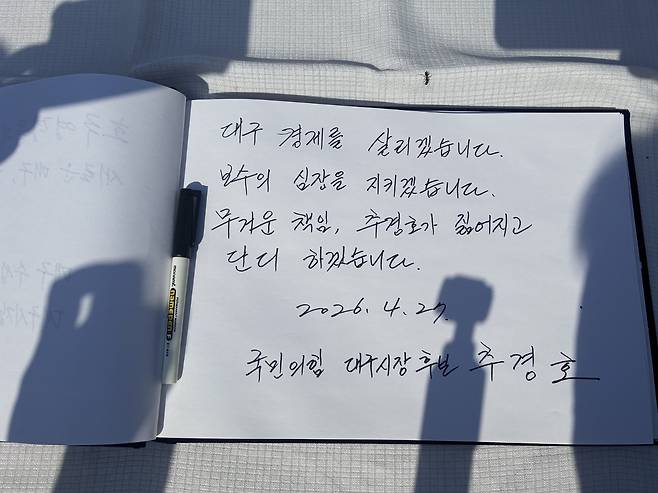 대구 경제를 살리겠습니다.
보수의 심장을 지키겠습니다.
무거운 책임, 추경호가 짊어지고
단디 하겠습니다.
2026. 4. 27.
국민의힘 대구시장 후보 추경호